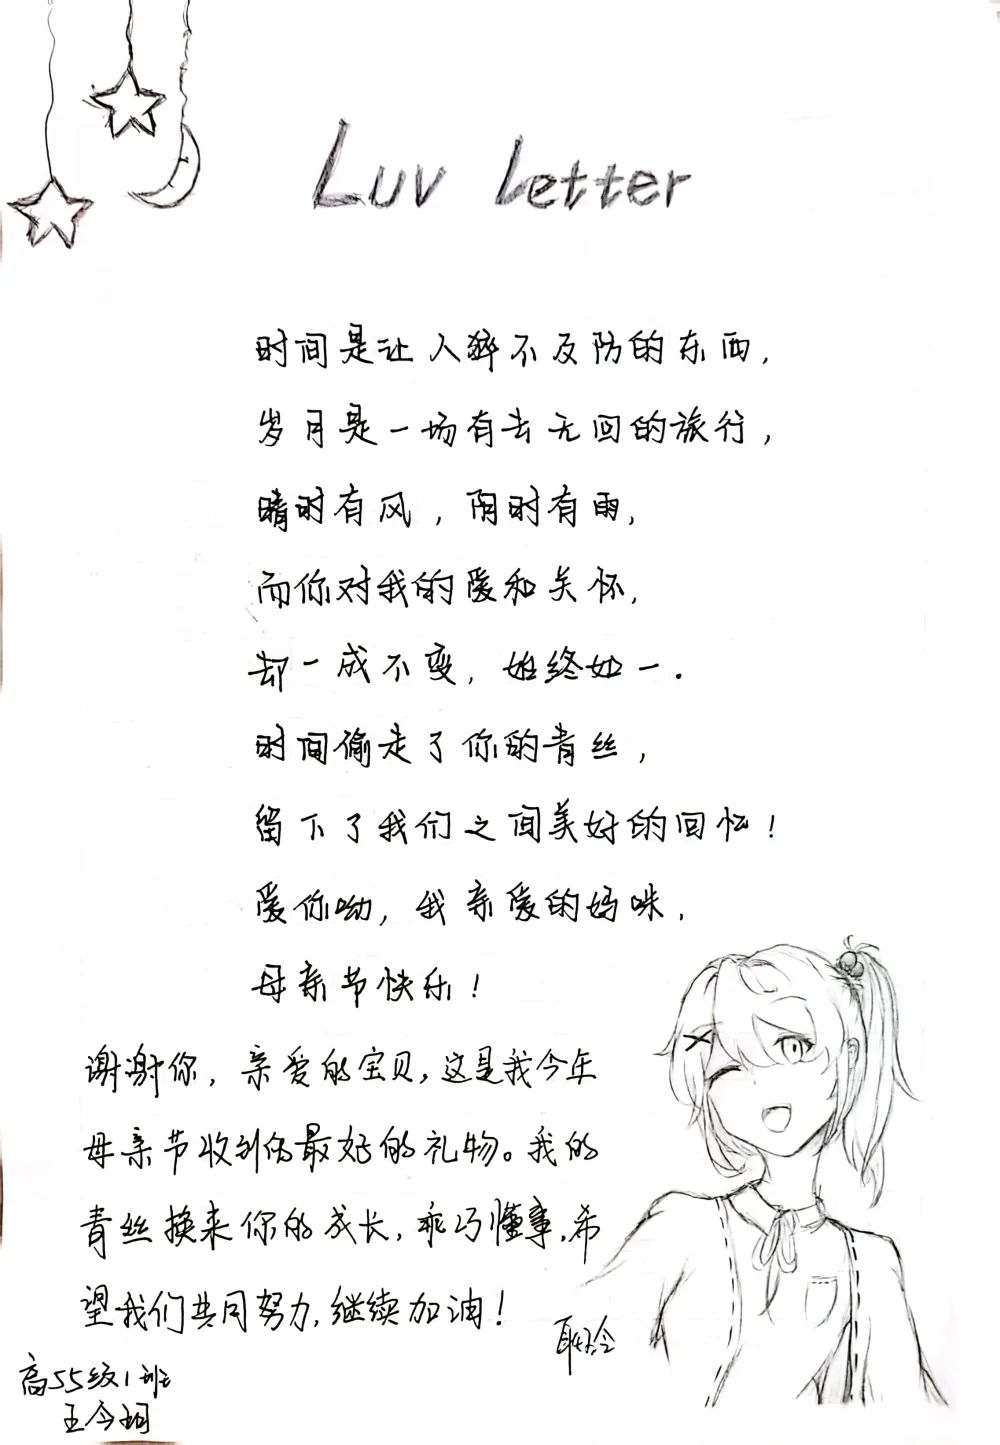 Luv Letter
时间是让人猝不及防的东西，
岁月是一场有去无回的旅行，
晴时有风，阴时有雨，
而你对我的爱和关怀，
却一成不变，始终如一．
时间偷走了你的青丝，
留下了我们之间美好的回忆！
爱你呦，我亲爱的妈咪．
母亲节快乐！
谢谢你，亲爱的宝贝，这是我今年
母亲节收到的最好的礼物。我的
青丝换来你的成长，乖巧懂事，希
望我们共同努力，继续加油！
高55级1班
王今